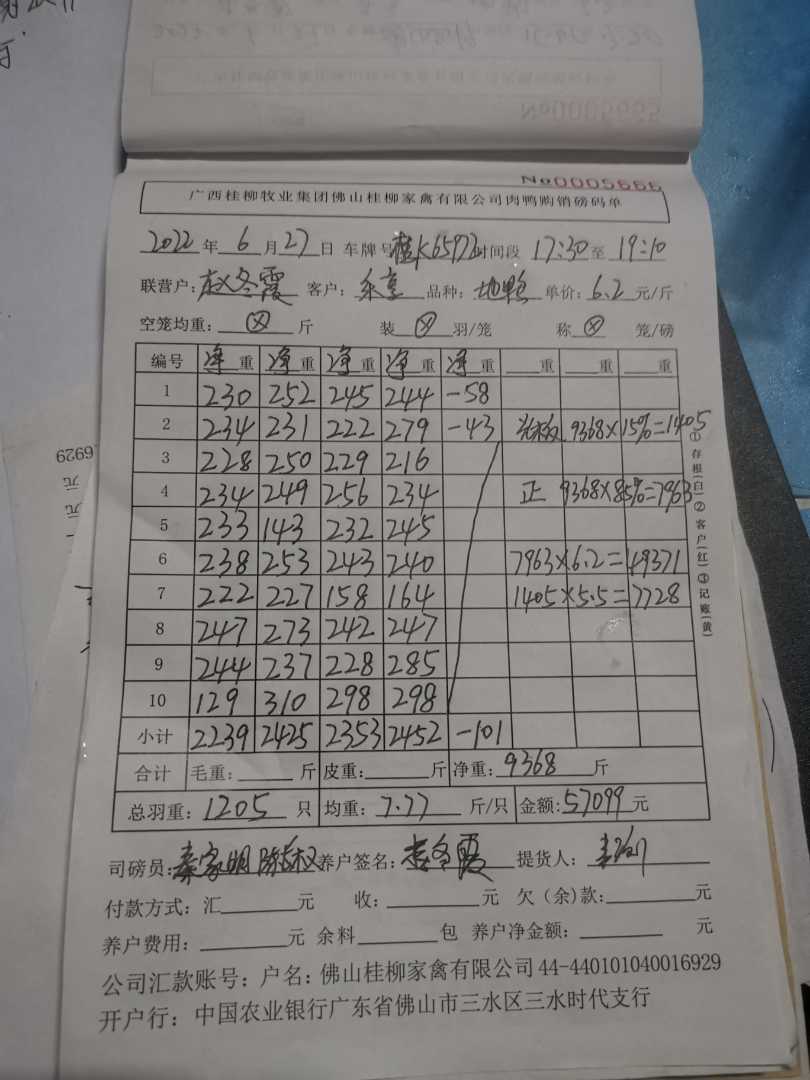 No0005666
广西桂柳牧业集团佛山桂柳家禽有限公司肉鸭购销磅码单
2022年6月27日 车牌号桂K65973时间段17:30至19:10
联营户:赵冬霞 客户: 品种:地鸭 单价:6.2元/斤
空笼均重:⊗斤 装⊗羽/笼 称⊗笼/磅
编号 净重 净重 净重 净重 净 重 重 重
1 230 252 245 244 -58
2 234 231 222 279 -43 9368×15%=1405
3 228 250 229 216
4 234 249 256 234 正 9368×85%=7963
5 233 143 232 245
6 238 253 243 240 7963×6.2=49371
7 222 227 158 164 1405×5.5=7728
8 247 273 242 247
9 244 237 228 285
10 129 310 298 298
小计 2239 2425 2353 2452 -101
合计 毛重:斤 皮重:斤 净重:9368斤
总羽重:1205只 均重:7.77斤/只 金额:57099元
司磅员:秦家明 养户签名:赵冬霞 提货人:
付款方式:汇元 收:元 欠(余)款:元
养户费用:元 余料包 养户净金额:元
公司汇款账号:户名:佛山桂柳家禽有限公司44-440101040016929
开户行:中国农业银行广东省佛山市三水区三水时代支行
①存根(白)②客户(红)③记账(黄)